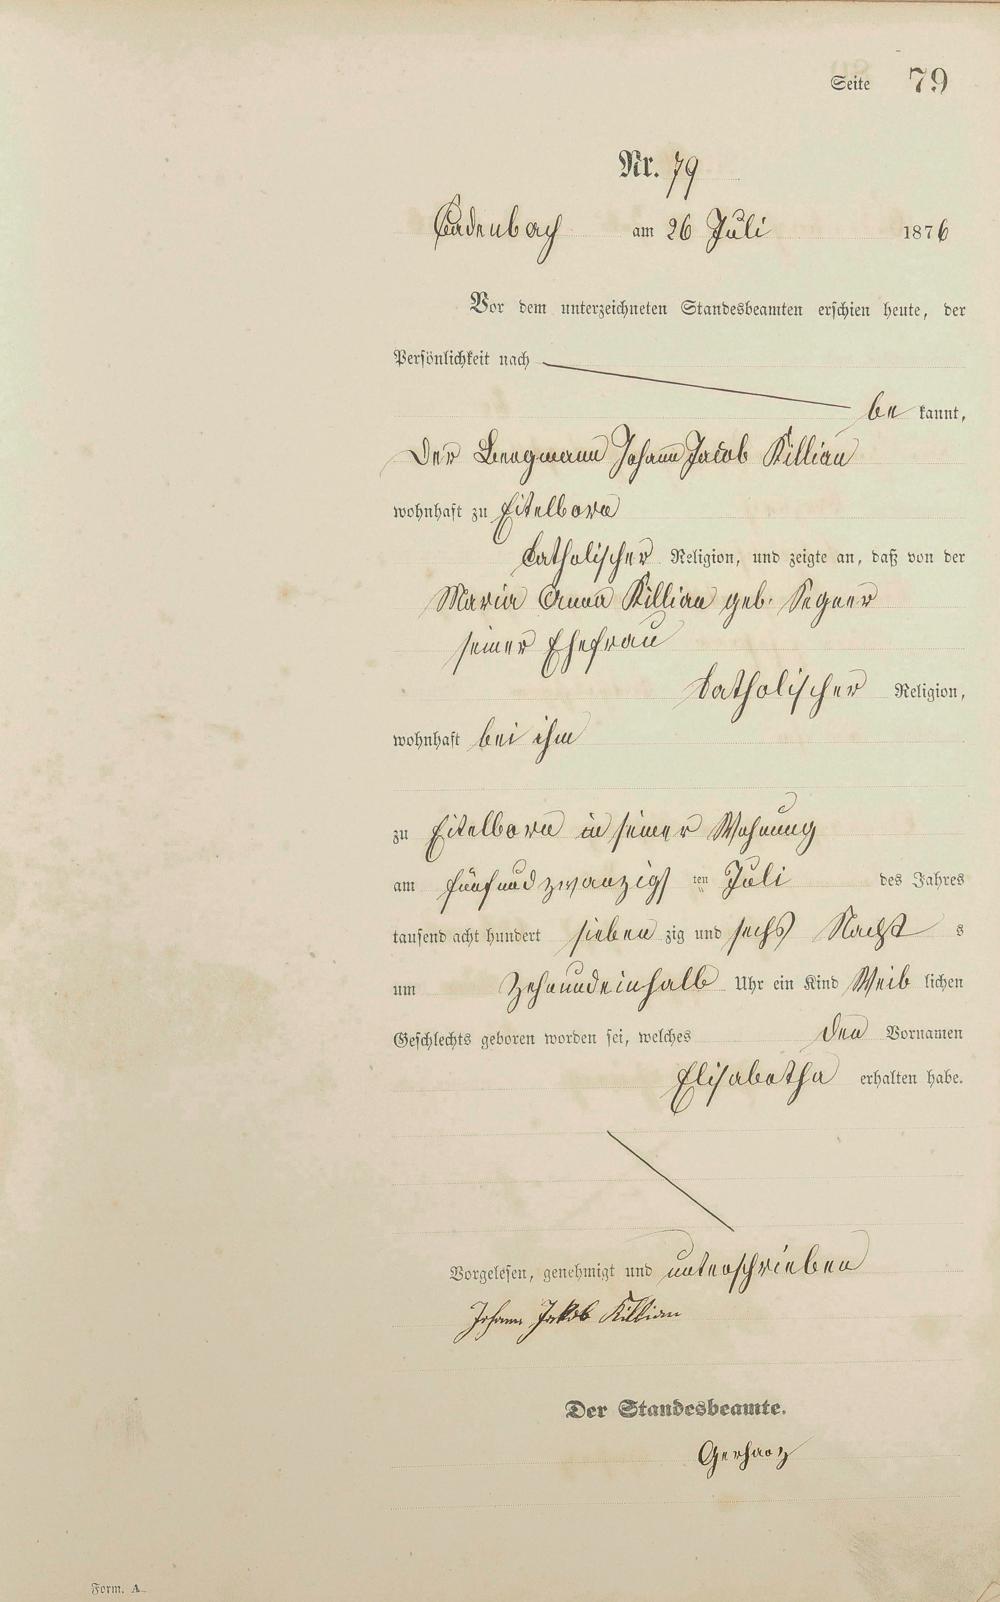 Seite 79
Nr. 79
Cadenbach am 26 Juli 1876
Vor dem unterzeichneten Standesbeamten erschien heute, der
Persönlichkeit nach
be kannt,
Der Bergmann Johann Jacob Killian
wohnhaft zu Eitelborn
katholischer Religion, und zeigte an, daß von der
Maria Anna Killian geb. Segner
seiner Ehefrau
katholischer Religion,
wohnhaft bei ihm
zu Eitelborn in seiner Wohnung
am fünfundzwanzigs ten Juli des Jahres
tausend acht hundert sieben zig und sechs Nacht s
um Zehnundeinhalb Uhr ein Kind Weib lichen
Geschlechts geboren worden sei, welches den Vornamen
Elisabetha erhalten habe.
Vorgelesen, genehmigt und unterschrieben
Johann Jakob Killian
Der Standesbeamte.
Gerharz
Form. A.